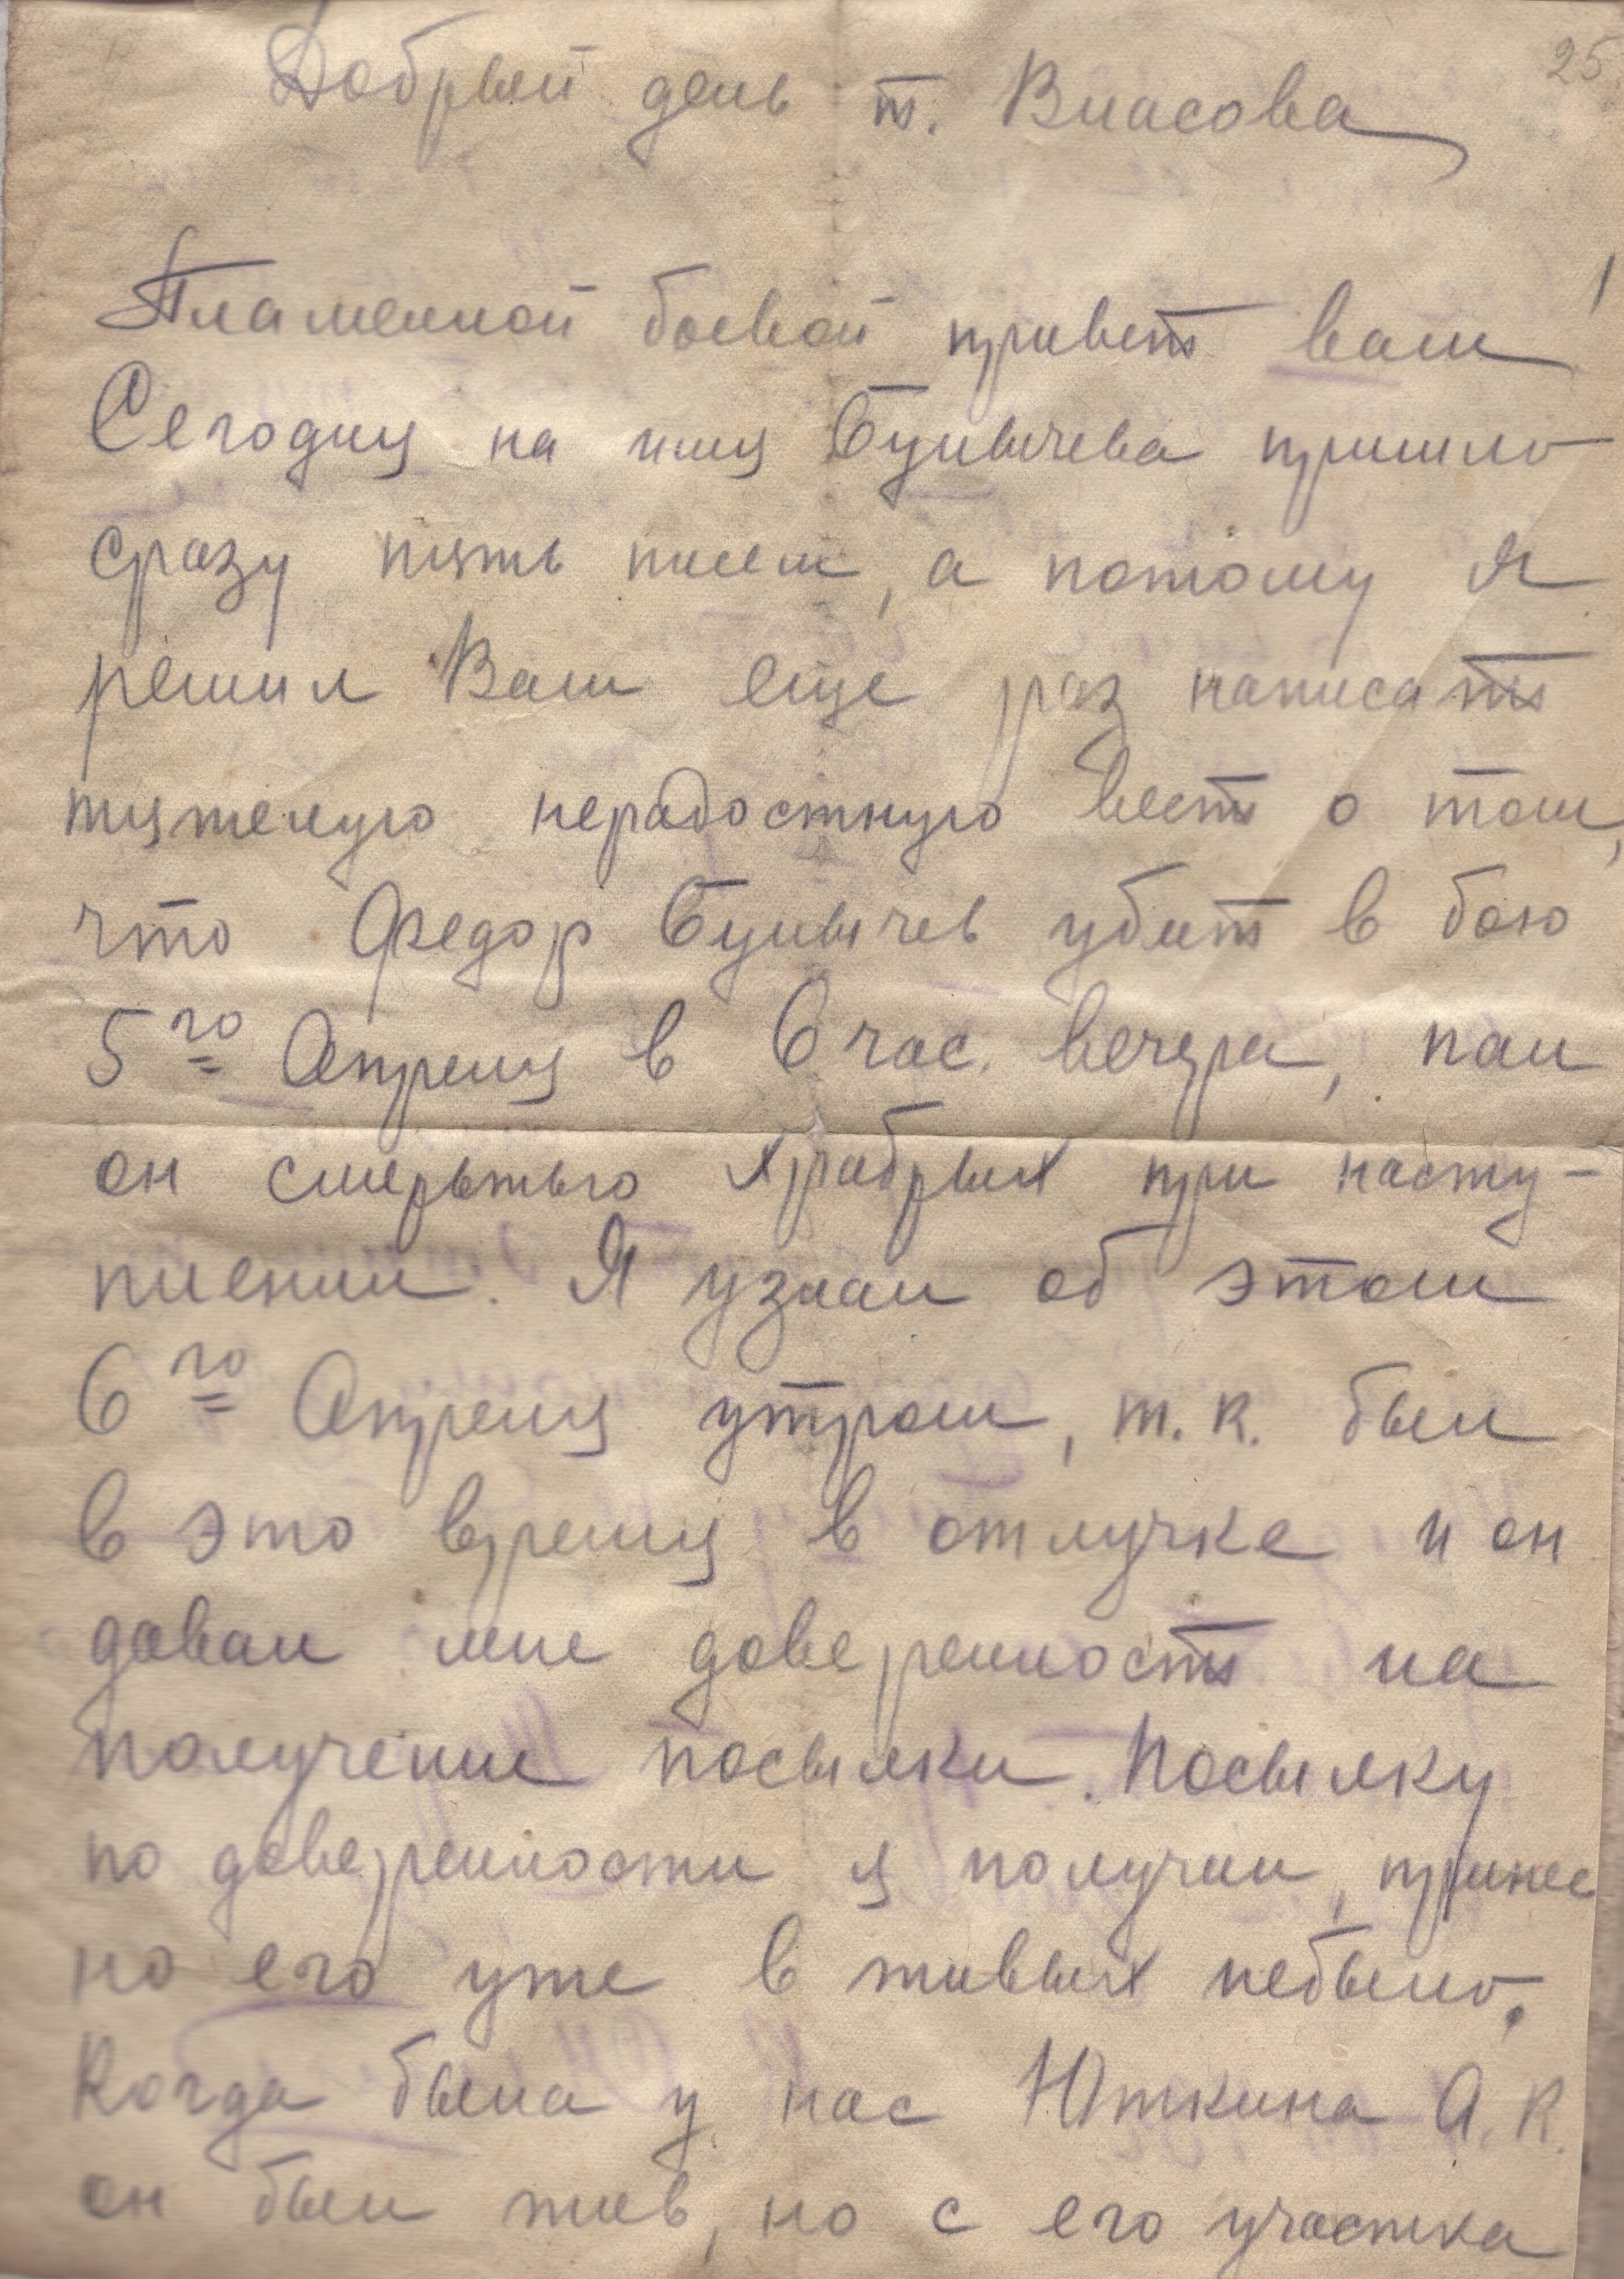 25
Добрый день т. Власова
Пламенной боевой привет вам!
Сегодня на имя Булычева пришло
сразу пять писем, а потому я
решил Вам еще раз написать
тяжелую нерадостную весть о том,
что Федор Булычев убит в бою
5го Апреля в 6 час. вечера, пал
он смертью храбрых при насту-
плении. Я узнал об этом
6го Апреля утром, т.к. был
в это время в отлучке и он
давал мне доверенность на
получение посылки. Посылку
по доверенности я получил, принес
но его уже в живых небыло.
Когда была у нас Юткина А.К.
он был жив, но с его участка